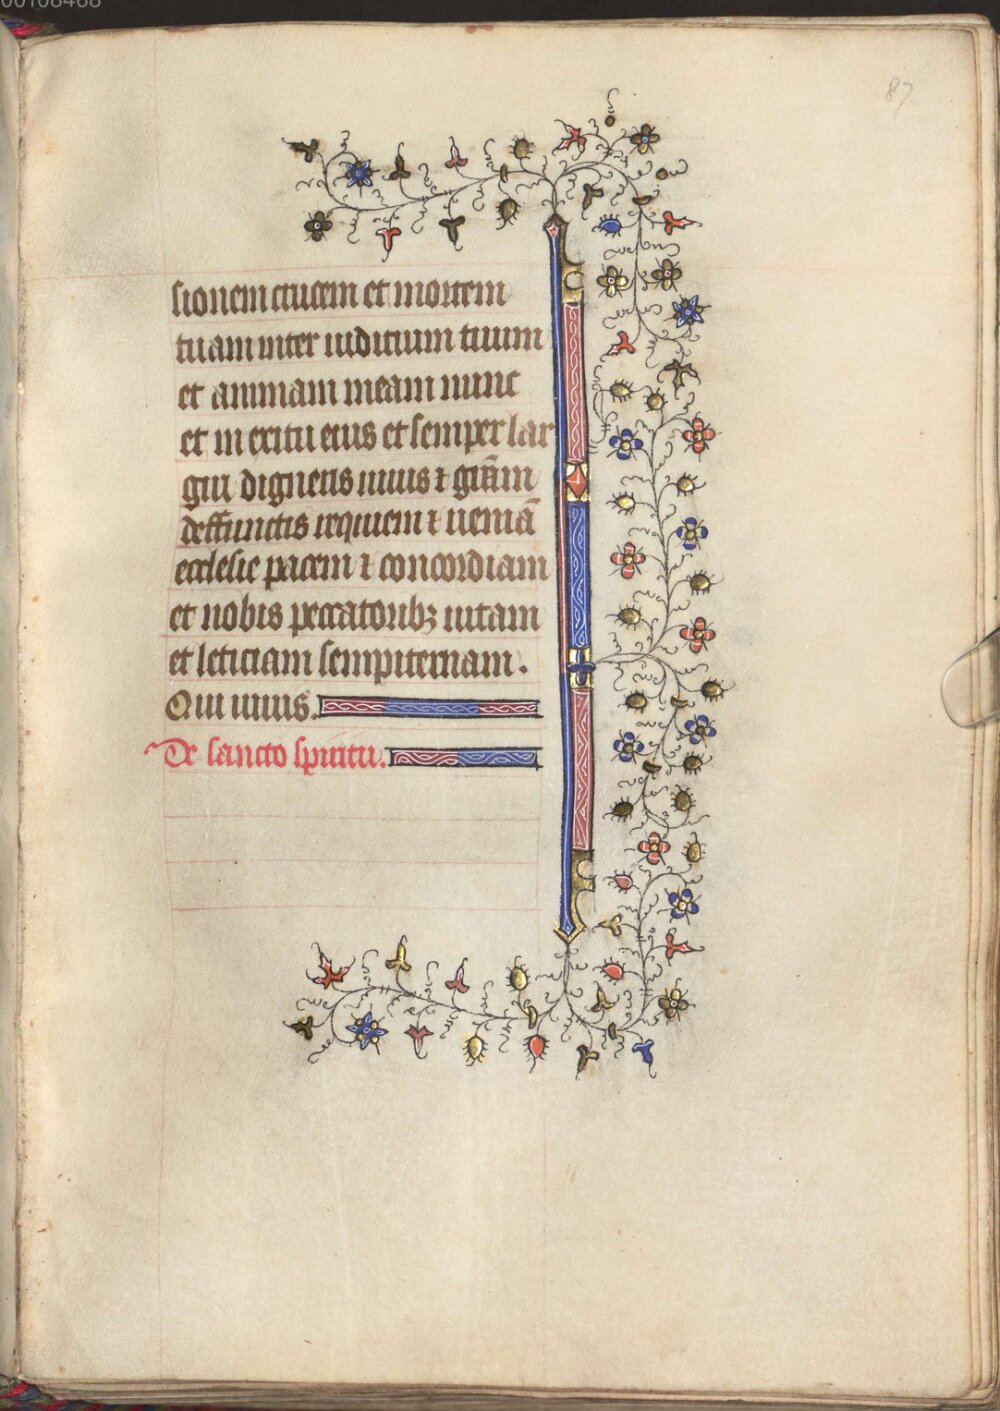 00108468
87
sionem crucem et mortem
tuam inter iudicium tuum
et animam meam nunc
et in exitu eius et semper lar
giri digneris uiuis ⁊ grãm
deffunctis requiem ⁊ueniã
ecclesie pacem ⁊ concordiam
et nobis peccatoribꝫ uitam
et leticiam sempiternam.
Qui uiuis.
De sancto spiritu.